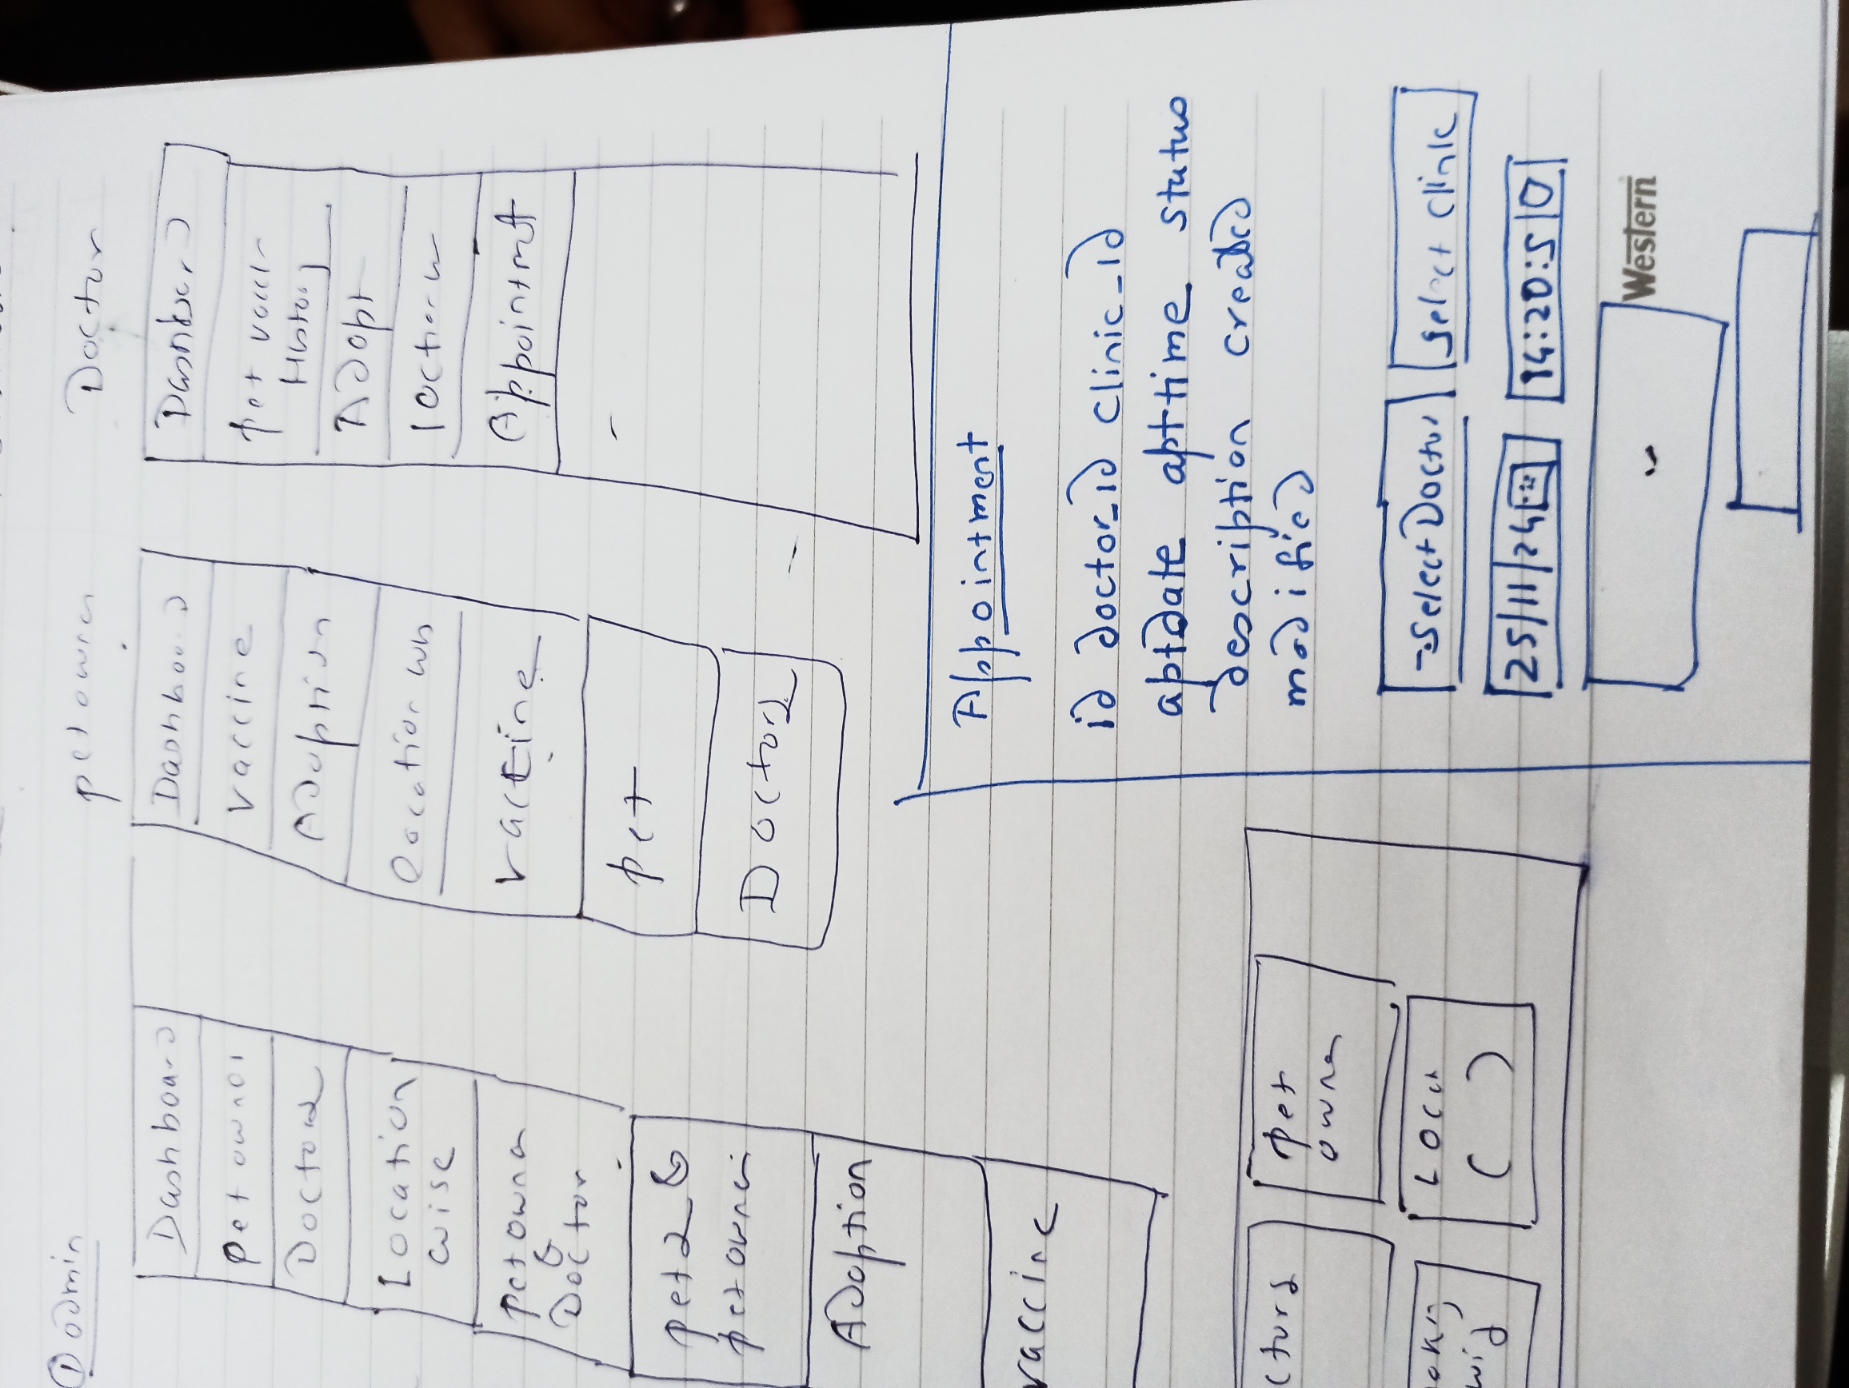 ① admin
Dashboard
pet owner
Doctors
Location
wise
pet owner
&
Doctor
pets &
pet owner
Adoption
vaccine
pet owner
Dashboard
vaccine
Adoption
vaccine
pet
Doctors
Doctor
Dashboard
pet
History
Adopt
Appointmt
ctors
pet
owner
Loca
( )
Appointment
id doctor_id clinic_id
aptdate apttime status
description created
modified
-select Doctor
select clinic
25/11/24
14:20:5
Western